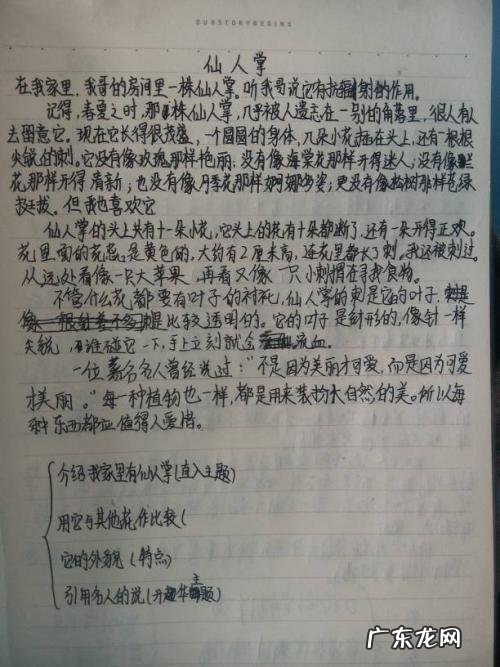 OURSTORYBEGINS
仙人掌
在我家里,我哥的房间里一株仙人掌。听我哥说它有抗辐射的作用。
记得,春夏之时,那株仙人掌,几乎被人遗忘在一别的角落里,很人有人
去留意它。现在它长得很茂盛,一个圆圆的身体,几朵小花插在头上,还有一根根
尖锐的刺。它没有像玫瑰那样艳丽;没有像海棠花那样开得迷人;没有像兰
花那样开得清新;也没有像月季花那样婀娜多姿;更没有像松树那样苍绿
挺拔。但我也喜欢它
仙人掌的头上共有十一朵小花,它头上的花有十朵都断了,还有一朵开得正欢。
花里面的花蕊是黄色的,大约有2厘米高,连花里都长了刺。我还被刺过。
从远处看像一只大苹果,再看又像一只小刺猬在寻找食物。
不管什么花,都要有叶子的衬托,仙人掌的刺是它的叶子
是比较透明的。它的叶子是针形的,像针一样
尖锐,谁碰它一下,手上立刻就会流血。
一位著名名人曾经说过:“不是因为美丽才可爱,而是因为可爱
才美丽。”每一种植物也一样,都是用来装扮大自然的美。所以每
种东西都应值得人爱惜。
介绍我家里有仙人掌(直入主题)
用它与其他花作比较(
它的外貌(特点)
引用名人的说(升华主题)
广东龙网